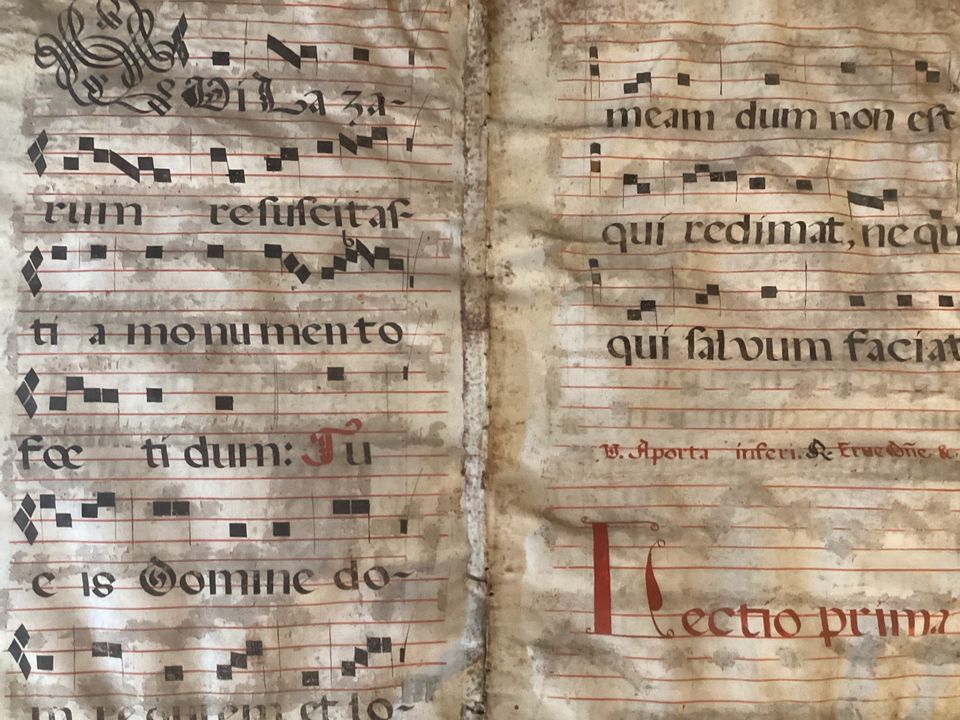 Qui Laza-
rum resuscitas-
ti a monumento
fœtidum: Tu
eis Domine do-
na requiem et lo-
meam dum non est
qui redimat, nequ
qui salvum faciat
V. A porta inferi. R. Erue Dñe. &.
Lectio prima